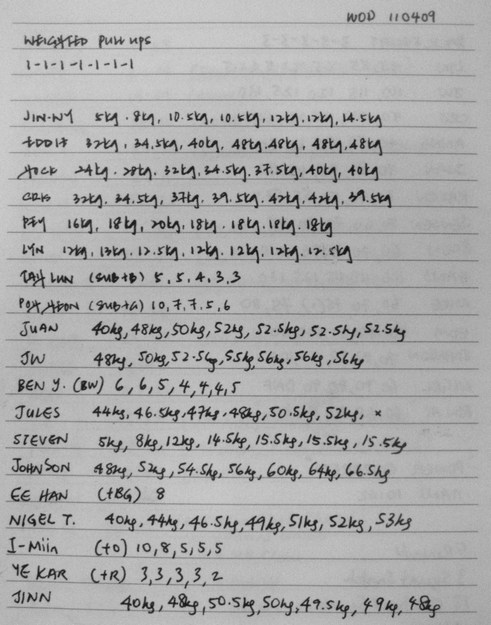 WOD 110409
WEIGHTED PULL UPS
1-1-1-1-1-1-1
JIN-NY 5kg, 8kg, 10.5kg, 10.5kg, 12kg, 12kg, 14.5kg
EDDIE 32kg, 34.5kg, 40kg, 48kg, 48kg, 48kg, 48kg
HOCK 24kg, 28kg, 32kg, 34.5kg, 37.5kg, 40kg, 40kg
CRIS 32kg, 34.5kg, 37kg, 39.5kg, 42kg, 42kg, 39.5kg
PEY 16kg, 18kg, 20kg, 18kg, 18kg, 18kg, 18kg
LYN 12kg, 13kg, 12.5kg, 12kg, 12kg, 12kg, 12.5kg
LUN (SUB+B) 5, 5, 4, 3, 3
(SUB+G) 10, 7, 7, 5, 6
JUAN 40kg, 48kg, 50kg, 52kg, 52.5kg, 52.5kg, 52.5kg
JW 48kg, 50kg, 52.5kg, 55kg, 56kg, 56kg, 56kg
BEN Y. (BW) 6, 6, 5, 4, 4, 4, 5
JULES 44kg, 46.5kg, 47kg, 48kg, 50.5kg, 52kg, x
STEVEN 5kg, 8kg, 12kg, 14.5kg, 15.5kg, 15.5kg, 15.5kg
JOHNSON 48kg, 52kg, 54.5kg, 56kg, 60kg, 64kg, 66.5kg
EE HAN (+BG) 8
NIGEL T. 40kg, 44kg, 46.5kg, 49kg, 51kg, 52kg, 53kg
I-Miin (+O) 10, 8, 5, 5, 5
YE KAR (+R) 3, 3, 3, 3, 2
JINN 40kg, 48kg, 50.5kg, 50kg, 49.5kg, 49kg, 48kg